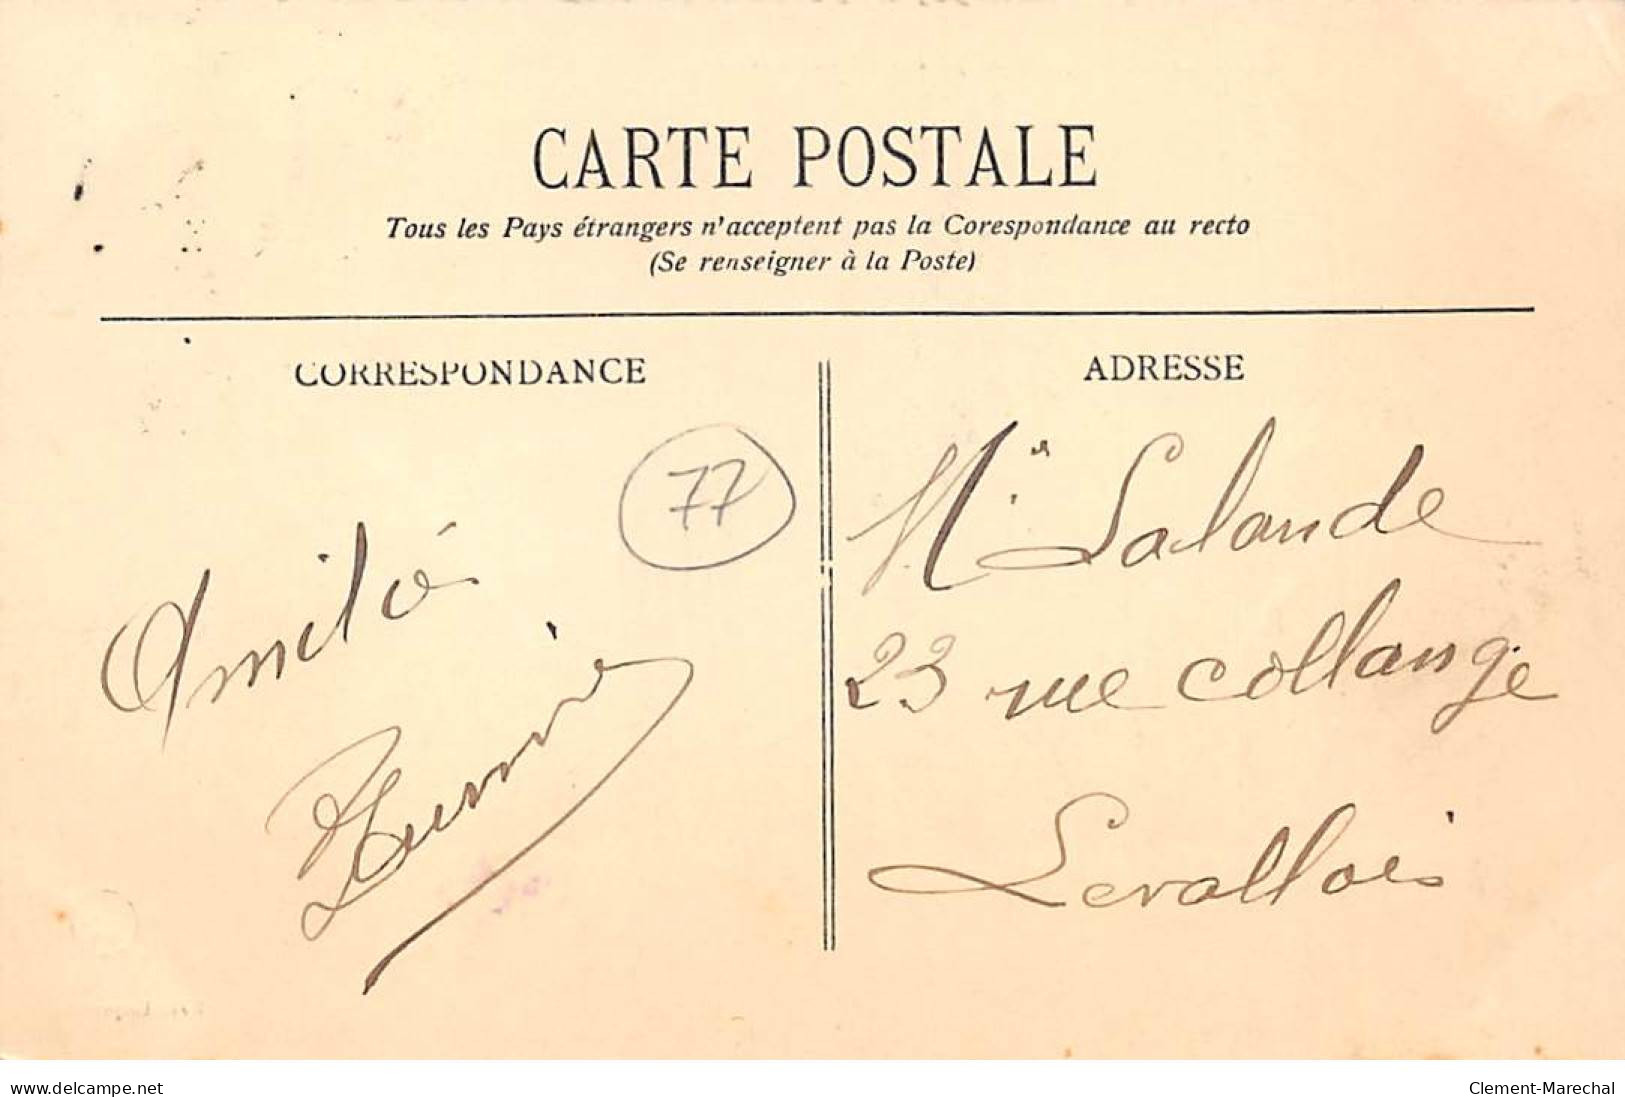 CARTE POSTALE
Tous les Pays étrangers n'acceptent pas la Corespondance au recto
(Se renseigner à la Poste)
CORRESPONDANCE
77
Amitié
ADRESSE
Mr Lalande
23 rue Collange
Levallois
www.delcampe.net
Clement-Marechal